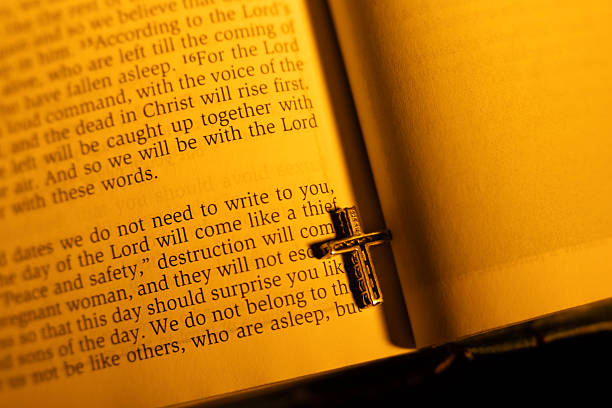 and so we believe that
in him. ¹⁵According to the Lord's
, who are left till the coming of
have fallen asleep. ¹⁶For the Lord
loud command, with the voice of the
and the dead in Christ will rise first.
left will be caught up together with
air. And so we will be with the Lord
with these words.
d dates we do not need to write to you,
he day of the Lord will come like a thief
"Peace and safety," destruction will com
egnant woman, and they will not esc
s so that this day should surprise you lik
d sons of the day. We do not belong to th
us not be like others, who are asleep, but